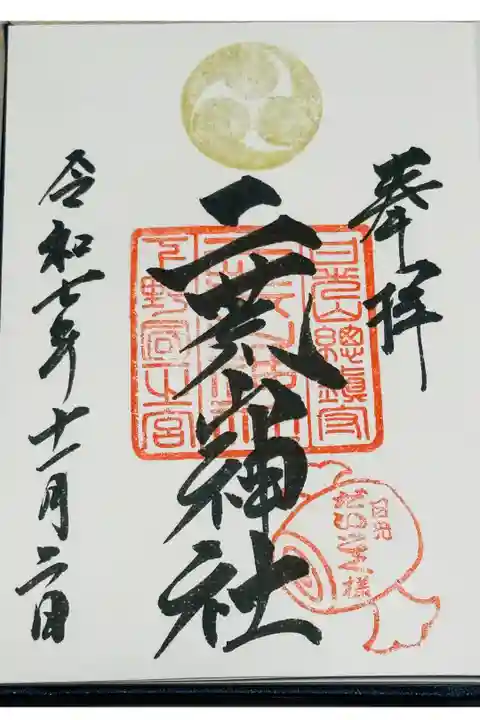 奉拝
日光山總鎮守
二荒山神社
下野國一之宮
日光
だいこく様
令和七年十一月二日